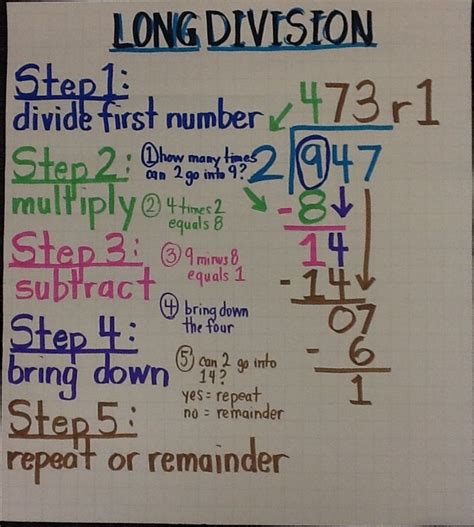 LONG DIVISION
Step 1:
divide first number
Step 2:
multiply
Step 3:
subtract
Step 4:
bring down
Step 5:
repeat or remainder
① how many times
can 2 go into 9?
② 4 times 2
equals 8
③ 9 minus 8
equals 1
④ bring down
the four
⑤ can 2 go into
14?
yes = repeat
no = remainder
473 r1
2 947
-8
14
-14
07
- 6
1